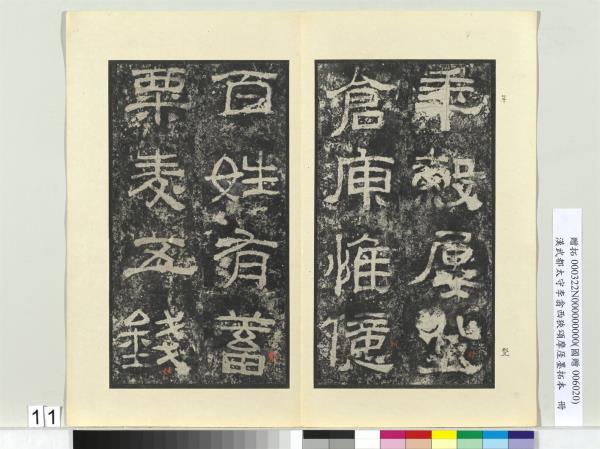 年穀屢登
倉庾惟億
百姓有蓄
粟麥五錢
年
登
贈拓 000322N000000000(國贈 006020)
漢武都太守李翕西狹頌摩厓墨拓本 冊
11